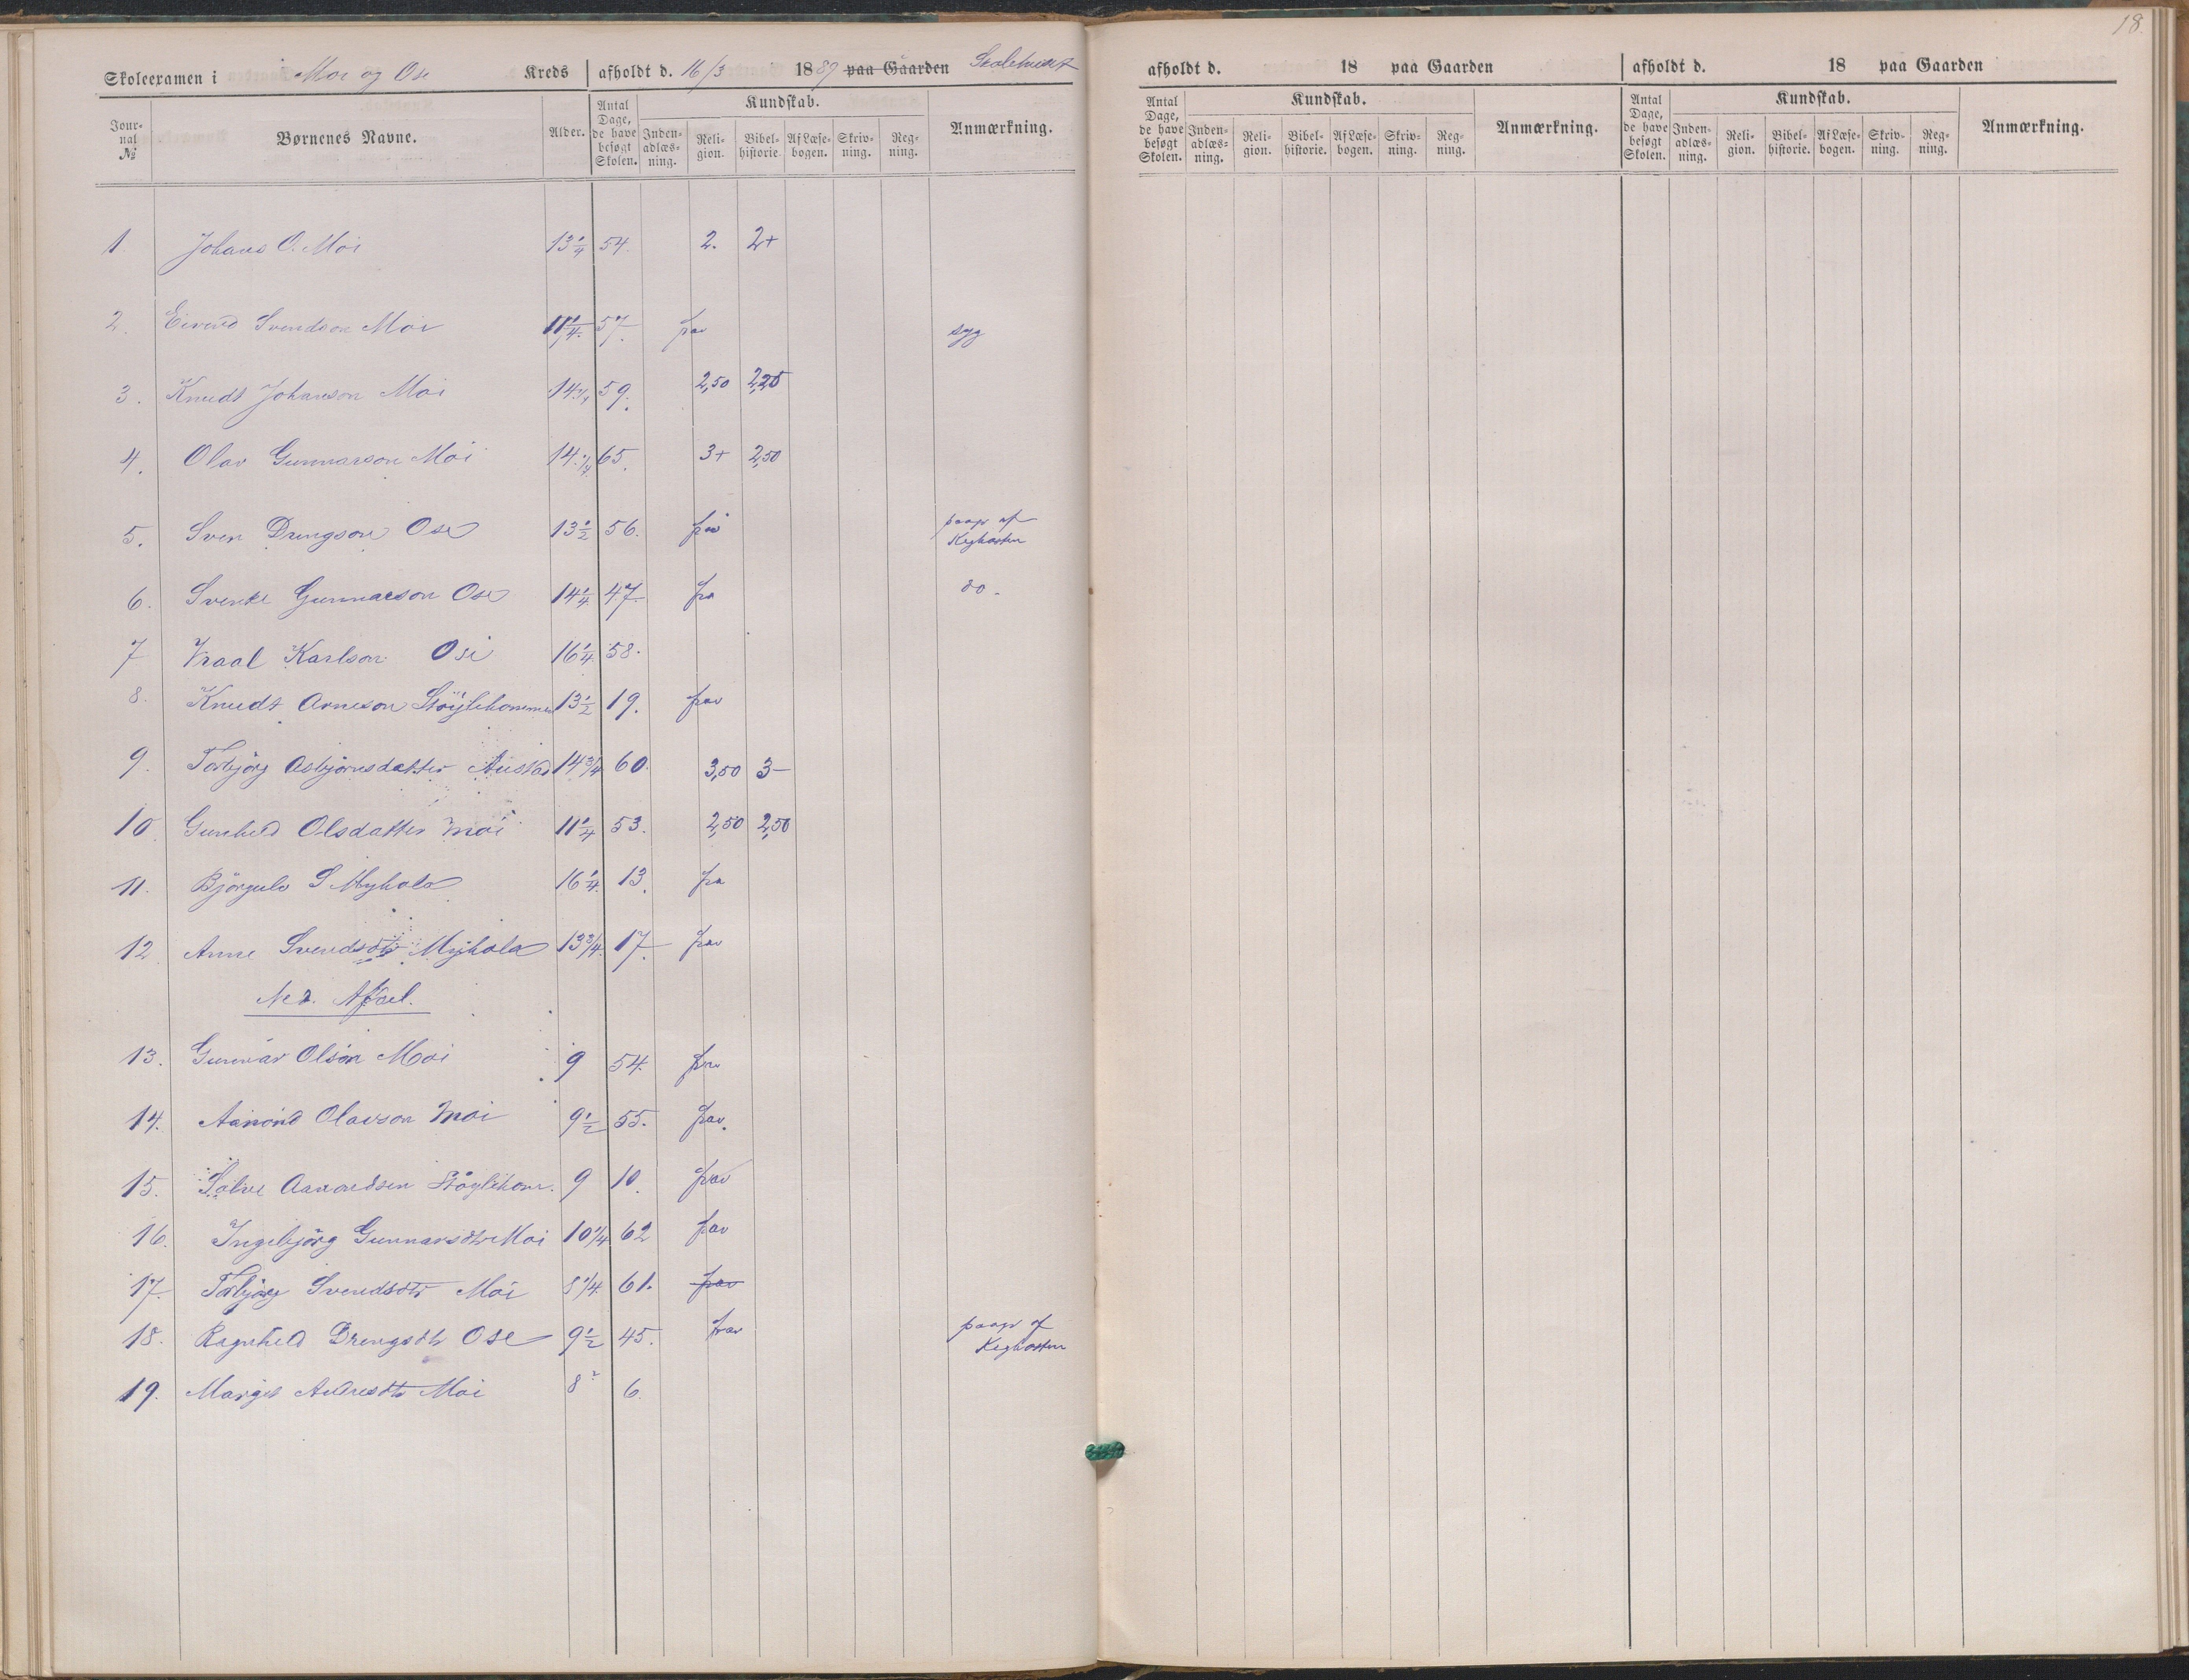 18.
Skoleexamen i Moi og Ose Kreds afholdt d. 16/3 1889 paa Gaarden Skolehuset
Journal № Børnenes Navne. Alder. Antal Dage, de have besøgt Skolen. Kundskab. Indenadlæsning. Religion. Bibelhistorie. Af Læsebogen. Skrivning. Regning. Anmærkning.
1 Johans O. Moi 13 1/4 54. 2. 2+
2. Eivind Svendson Moi 11 1/4. 57. frav syg
3. Knudt Johanson Moi 14 1/4 59. 2,50 2,25
4. Olav Gunnarson Moi 14 1/4 65. 3+ 2,50
5. Sven Drengson Ose 13 1/2 56. frav paagr af
Kighosten
6. Svenke Gunnarson Ose 14 1/4 47. fra do.
7 Vraal Karlson Ose 16 1/4. 58.
8. Knudt Arneson Støylehommen 13 1/2 19. frav
9. Torbjørg Asbjørnsdatter Austad 14 3/4 60. 3,50 3-
10 Gunhild Olsdatter Moi 11 1/4 53. 2,50 2,50
11. Bjørgulv S Myhola 16 1/4. 13. fra
12 Anne Svendsdtr Myhola 13 3/4. 17. frav
Ned. Afdel.
13. Gunnar Olson Moi 9 54. frav
14. Aanond Olavson Moi 9 1/2 55. frav.
15. Sølve Aanondsen Støylehom. 9 10. frav
16. Ingebjørg Gunnarsdtr Moi 10 1/4 62 frav
17. Torbjørg Svendsdtr Moi 8 1/4. 61. frav
18. Ragnhild Drengsdtr Ose 9 1/2 45. frav paagr af
Kighosten
19. Margit Andresdtr Moi 8 6.
afholdt d. 18 paa Gaarden
Antal Dage, de have besøgt Skolen. Kundskab. Indenadlæsning. Religion. Bibelhistorie. Af Læsebogen. Skrivning. Regning. Anmærkning.
afholdt d. 18 paa Gaarden
Antal Dage, de have besøgt Skolen. Kundskab. Indenadlæsning. Religion. Bibelhistorie. Af Læsebogen. Skrivning. Regning. Anmærkning.